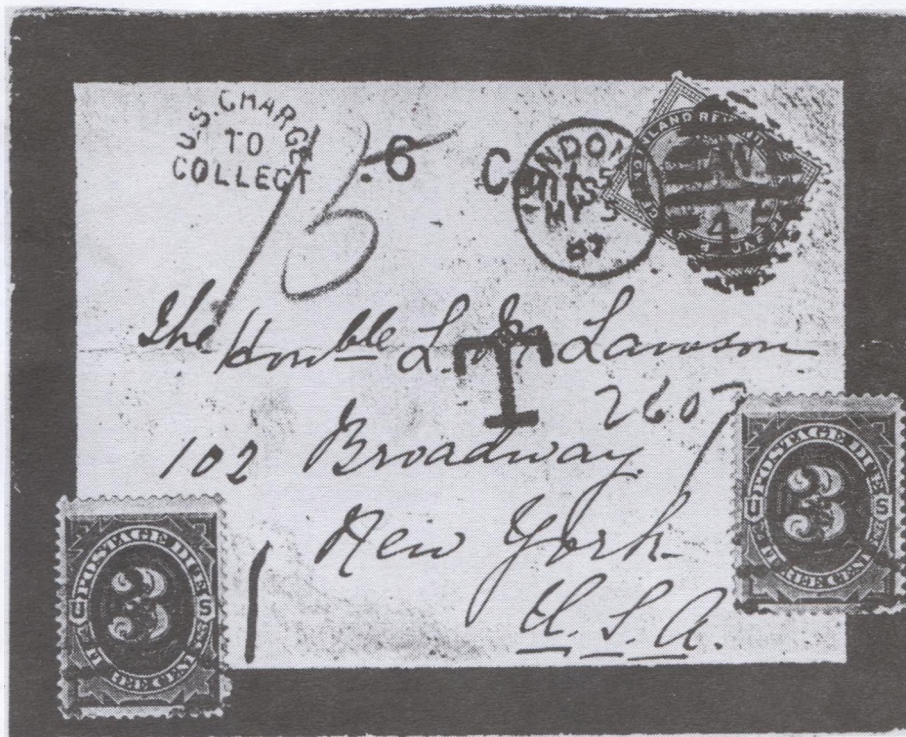 U.S. CHARGE
TO
COLLECT
15
.6 C
LONDON
MY
87
INLAND REVENUE
4
The Honble L. Lawson
T
2607
102 Broadway
New York
U.S.A.
POSTAGE DUE
U 3 S
THREE CENTS
POSTAGE DUE
U 3 S
THREE CENTS